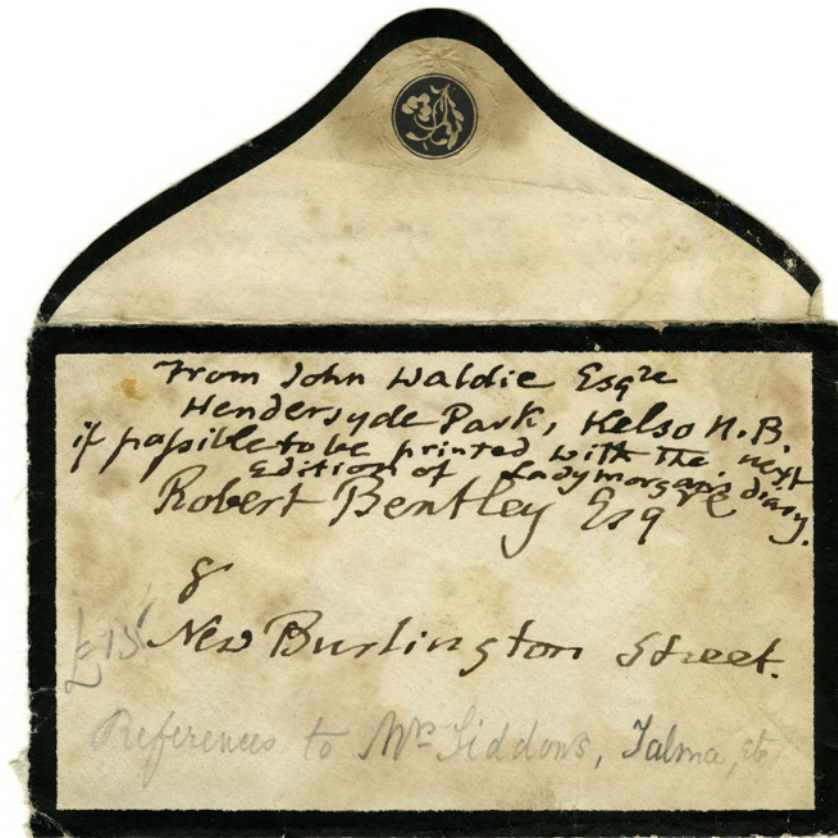 From John Waldie Esqre
Hendersyde Park, Kelso N.B.
if possible to be printed with the next
Edition of Lady Morgan's diary.
Robert Bentley Esqre
8
New Burlington Street.
£15
References to Mrs Siddons, Talma, etc